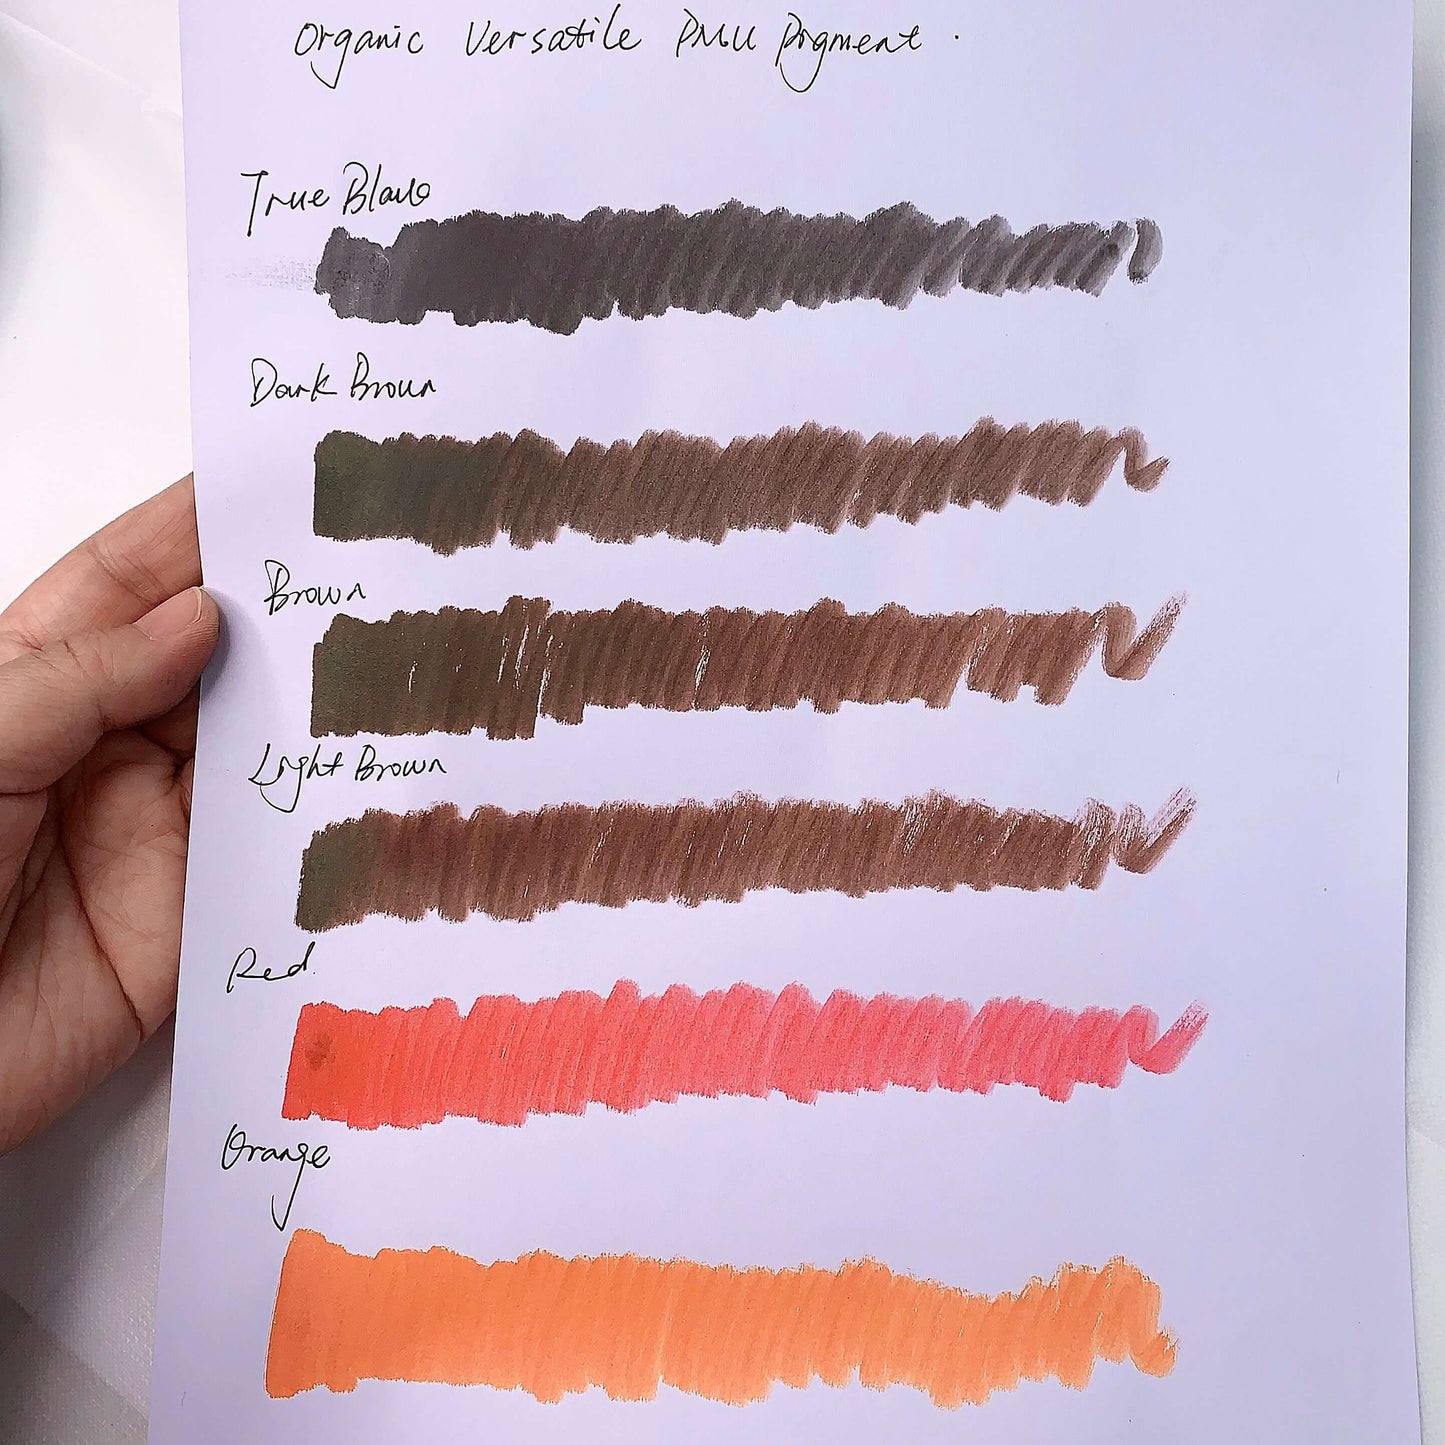 Organic Versatile PMU Pigment .
True Black
Dark Brown
Brown
Light Brown
Red.
Orange